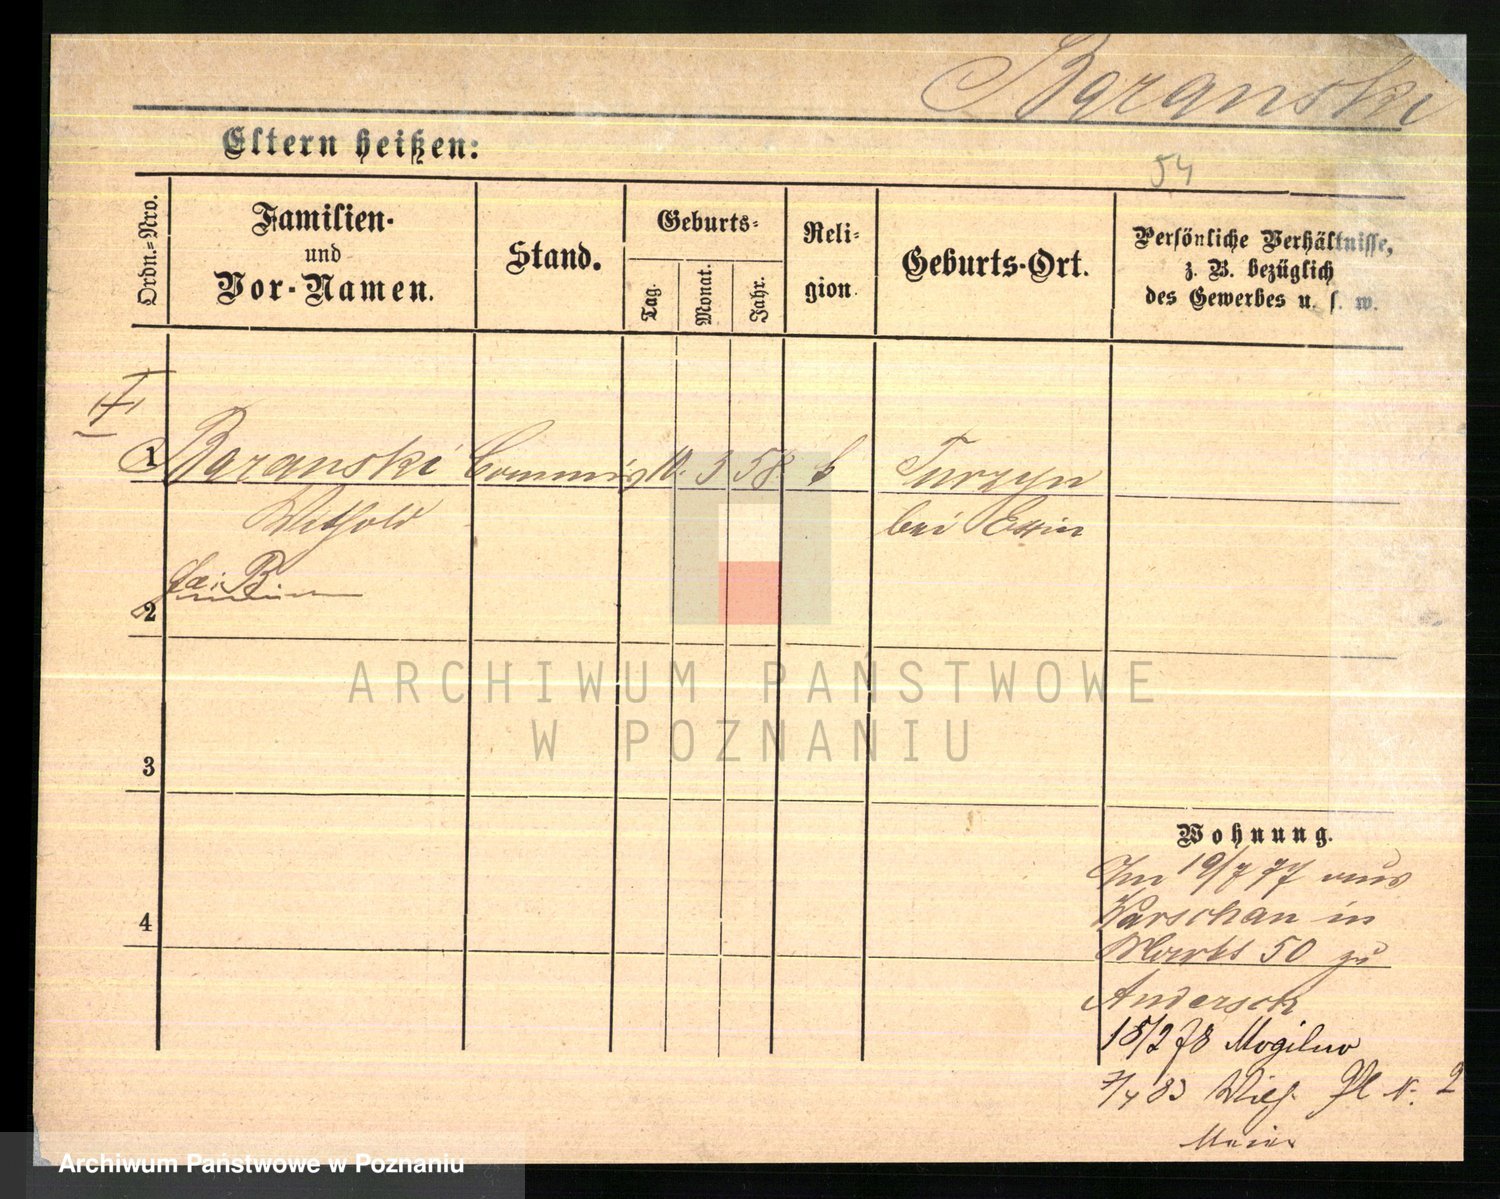 Baranski
Eltern heißen:
54
Ordn.=Nro.
Familien-
und
Vor-Namen.
Stand.
Geburts=
Tag.
Monat.
Jahr.
Reli=
gion.
Geburts-Ort.
Persönliche Verhältnisse,
z. B. bezüglich
des Gewerbes u. s. w.
1 Baranski Commis 10. 3 58 k Turzyn
Withold bei Exin
2
ARCHIWUM PAŃSTWOWE
W POZNANIU
3
Wohnung.
Im 19/7 77 aus
Warschau in
4
Markt 50 zu
Andersch
18/2 78 Mogilno
7/4 83 Wilh. Pl N. 2
Archiwum Państwowe w Poznaniu